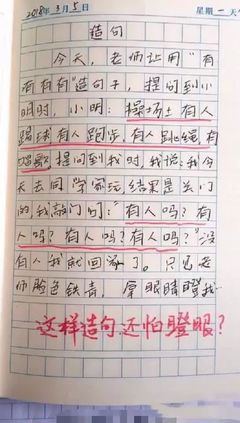 2018年3月5日 星期一 天
造句
今天，老师让用“有
有有有”造句子，提问到小
明时，小明：操场上有人
踢球有人跑步，有人跳绳，有
唱歌，提问到我时，我说：我今
天去同学家玩结果是关门
的，我敲门问：“有人吗？有
人吗？有人吗？有人吗？”没
有人我就回家了。只见老
师脸色铁青，拿眼睛瞪我
这样造句还怕瞪眼？